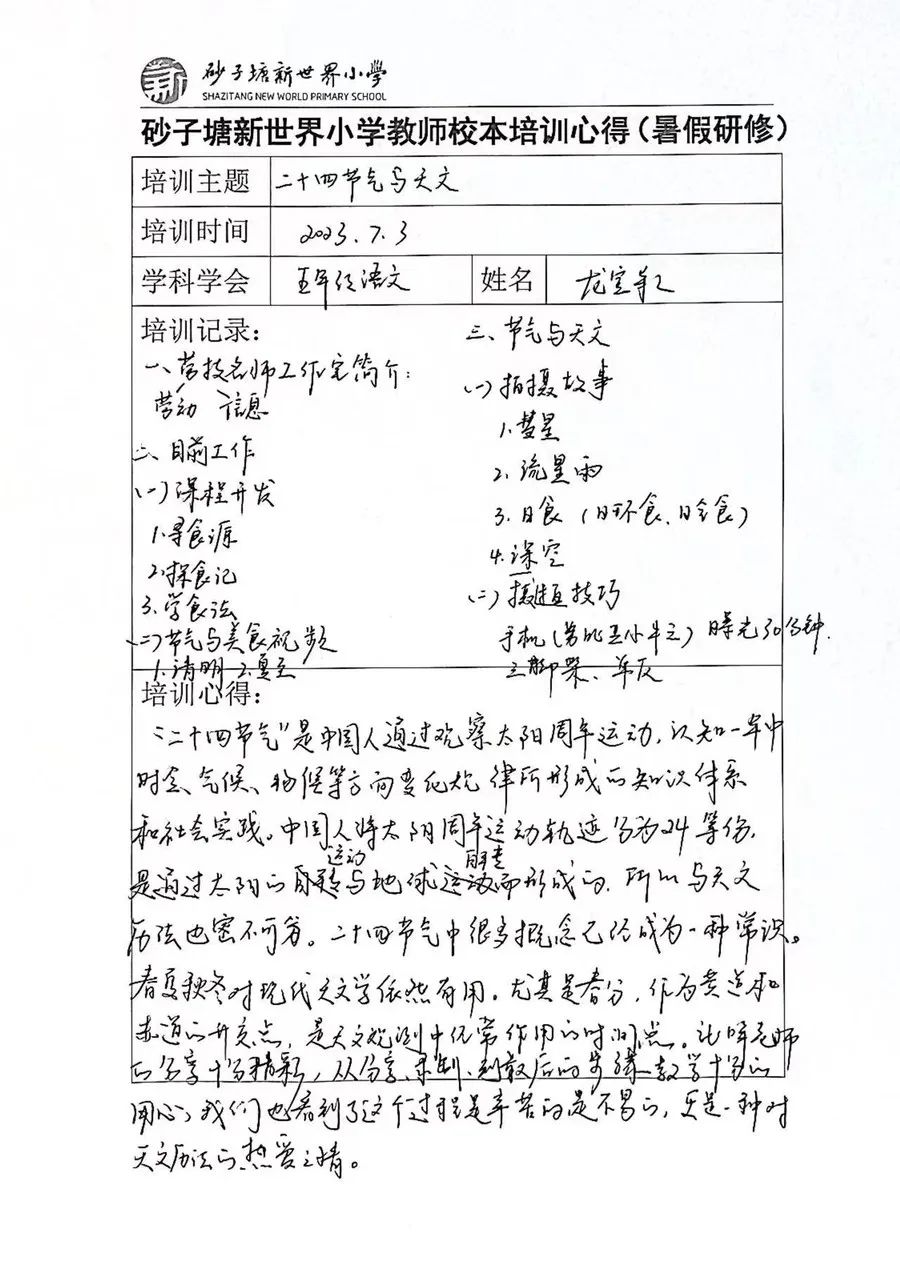 砂子塘新世界小学
SHAZITANG NEW WORLD PRIMARY SCHOOL
砂子塘新世界小学教师校本培训心得（暑假研修）
培训主题 二十四节气与天文
培训时间 2023.7.3
学科学会 五年级语文 姓名 龙宝
培训记录：
一、劳技名师工作室简介：
劳动 信息
二、目前工作
(一)课程开发
1.寻食源
2.探食记
3.学食法
(二)节气与美食视频
1.清明 2.夏至
三、节气与天文
(一)拍摄故事
1.彗星
2.流星雨
3.日食（日环食、日全食）
4.深空
(二)技巧
手机 曝光30分钟.
三脚架、单反
培训心得：
“二十四节气”是中国人通过观察太阳周年运动，认知一年中
时令、气候、物候等方面变化规律所形成的知识体系
和社会实践。中国人将太阳周年运动轨迹分为24等份，
是通过太阳的运动与地球自转而形成的，所以与天文
历法也密不可分。二十四节气中很多概念已经成为一种常识。
春夏秋冬对现代天文学依然有用。尤其是春分，作为黄道和
赤道的升交点，是天文观测中经常作用的时间点。老师
的分享十分精彩，从分享、录制、到最后的步骤教学十分的
用心，我们也看到了这个过程是辛苦的是不易的，更是一种对
天文历法的热爱之情。